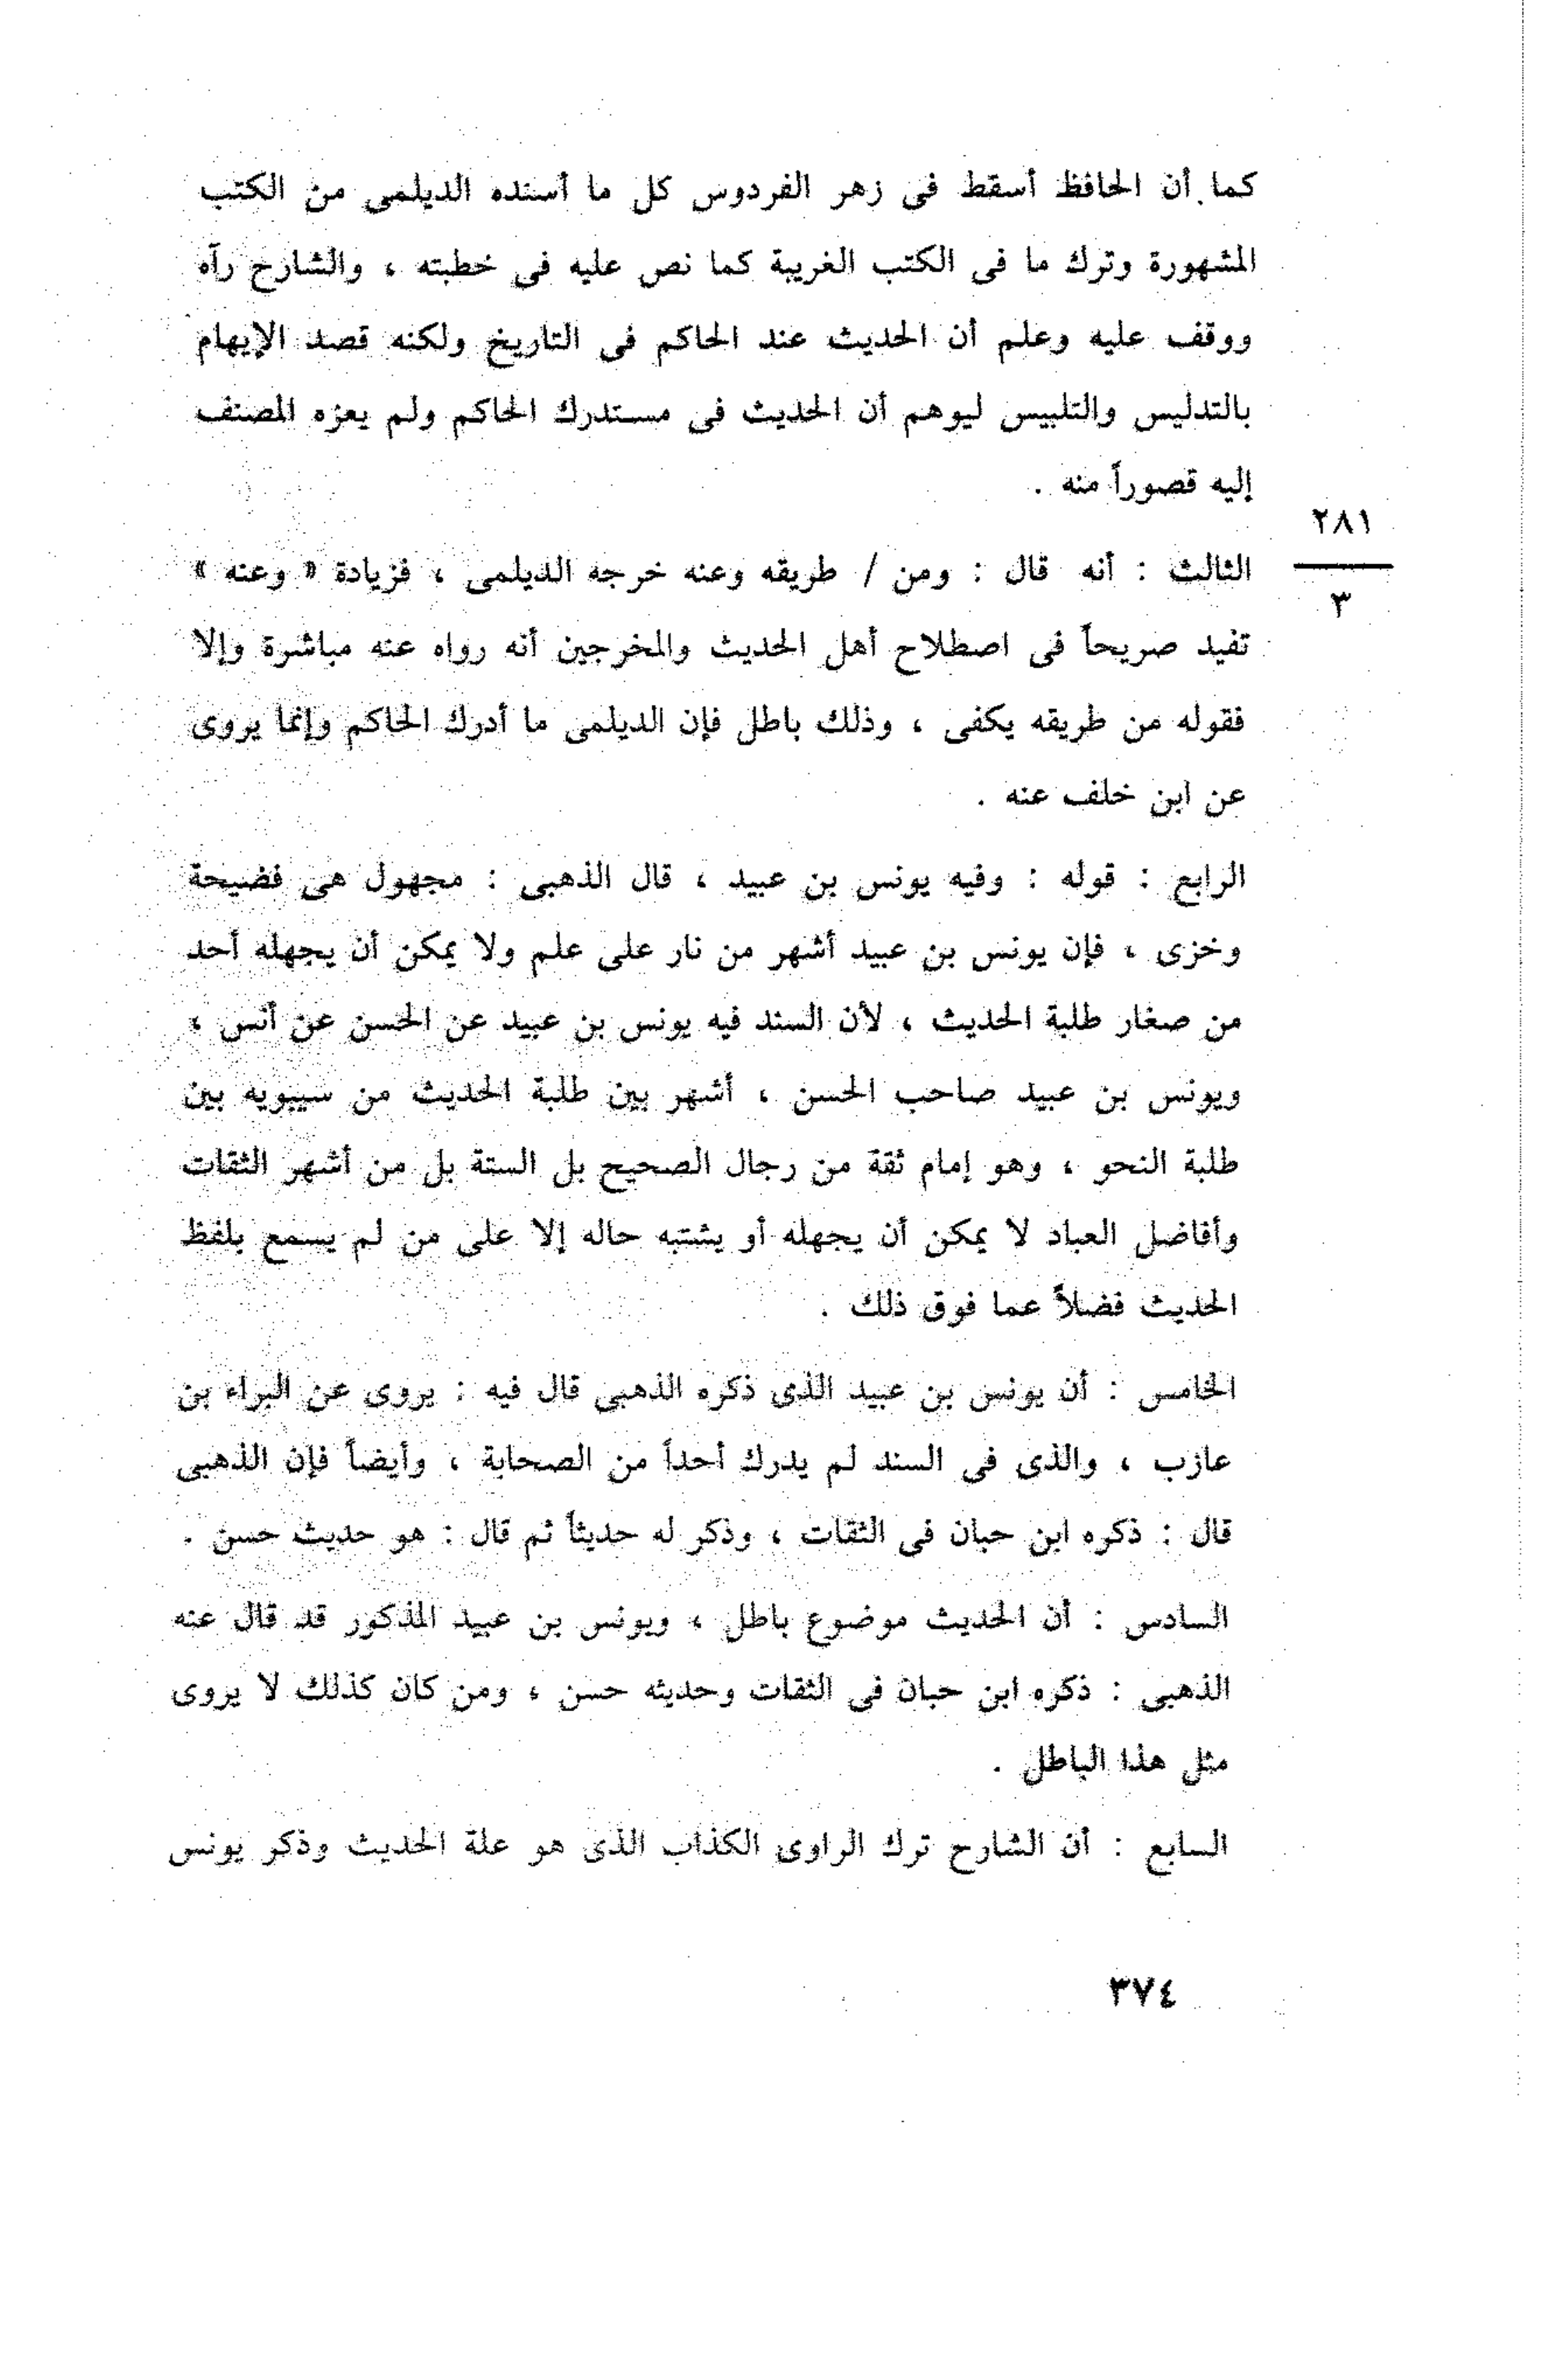 كما أن الحافظ أسقط فى زهر الفردوس كل ما أسنده الديلمى من الكتب
المشهورة وترك ما فى الكتب الغريبة كما نص عليه فى خطبته ، والشارح رآه
ووقف عليه وعلم أن الحديث عند الحاكم فى التاريخ ولكنه قصد الإيهام
بالتدليس والتلبيس ليوهم أن الحديث فى مستدرك الحاكم ولم يعزه المصنف
إليه قصوراً منه .
٢٨١
٣
الثالث : أنه قال : ومن / طريقه وعنه خرجه الديلمى ، فزيادة « وعنه »
تفيد صريحاً فى اصطلاح أهل الحديث والمخرجين أنه رواه عنه مباشرة وإلا
فقوله من طريقه يكفى ، وذلك باطل فإن الديلمى ما أدرك الحاكم وإنما يروى
عن ابن خلف عنه .
الرابع : قوله : وفيه يونس بن عبيد ، قال الذهبى : مجهول هى فضيحة
وخزى ، فإن يونس بن عبيد أشهر من نار على علم ولا يمكن أن يجهله أحد
من صغار طلبة الحديث ، لأن السند فيه يونس بن عبيد عن الحسن عن أنس ،
ويونس بن عبيد صاحب الحسن ، أشهر بين طلبة الحديث من سيبويه بين
طلبة النحو ، وهو إمام ثقة من رجال الصحيح بل الستة بل من أشهر الثقات
وأفاضل العباد لا يمكن أن يجهله أو يشتبه حاله إلا على من لم يسمع بلفظ
الحديث فضلاً عما فوق ذلك .
الخامس : أن يونس بن عبيد الذى ذكره الذهبى قال فيه : يروى عن البراء بن
عازب ، والذى فى السند لم يدرك أحداً من الصحابة ، وأيضاً فإن الذهبى
قال : ذكره ابن حبان فى الثقات ، وذكر له حديثاً ثم قال : هو حديث حسن .
السادس : أن الحديث موضوع باطل ، ويونس بن عبيد المذكور قد قال عنه
الذهبى : ذكره ابن حبان فى الثقات وحديثه حسن ، ومن كان كذلك لا يروى
مثل هذا الباطل .
السابع : أن الشارح ترك الراوى الكذاب الذى هو علة الحديث وذكر يونس
٣٧٤